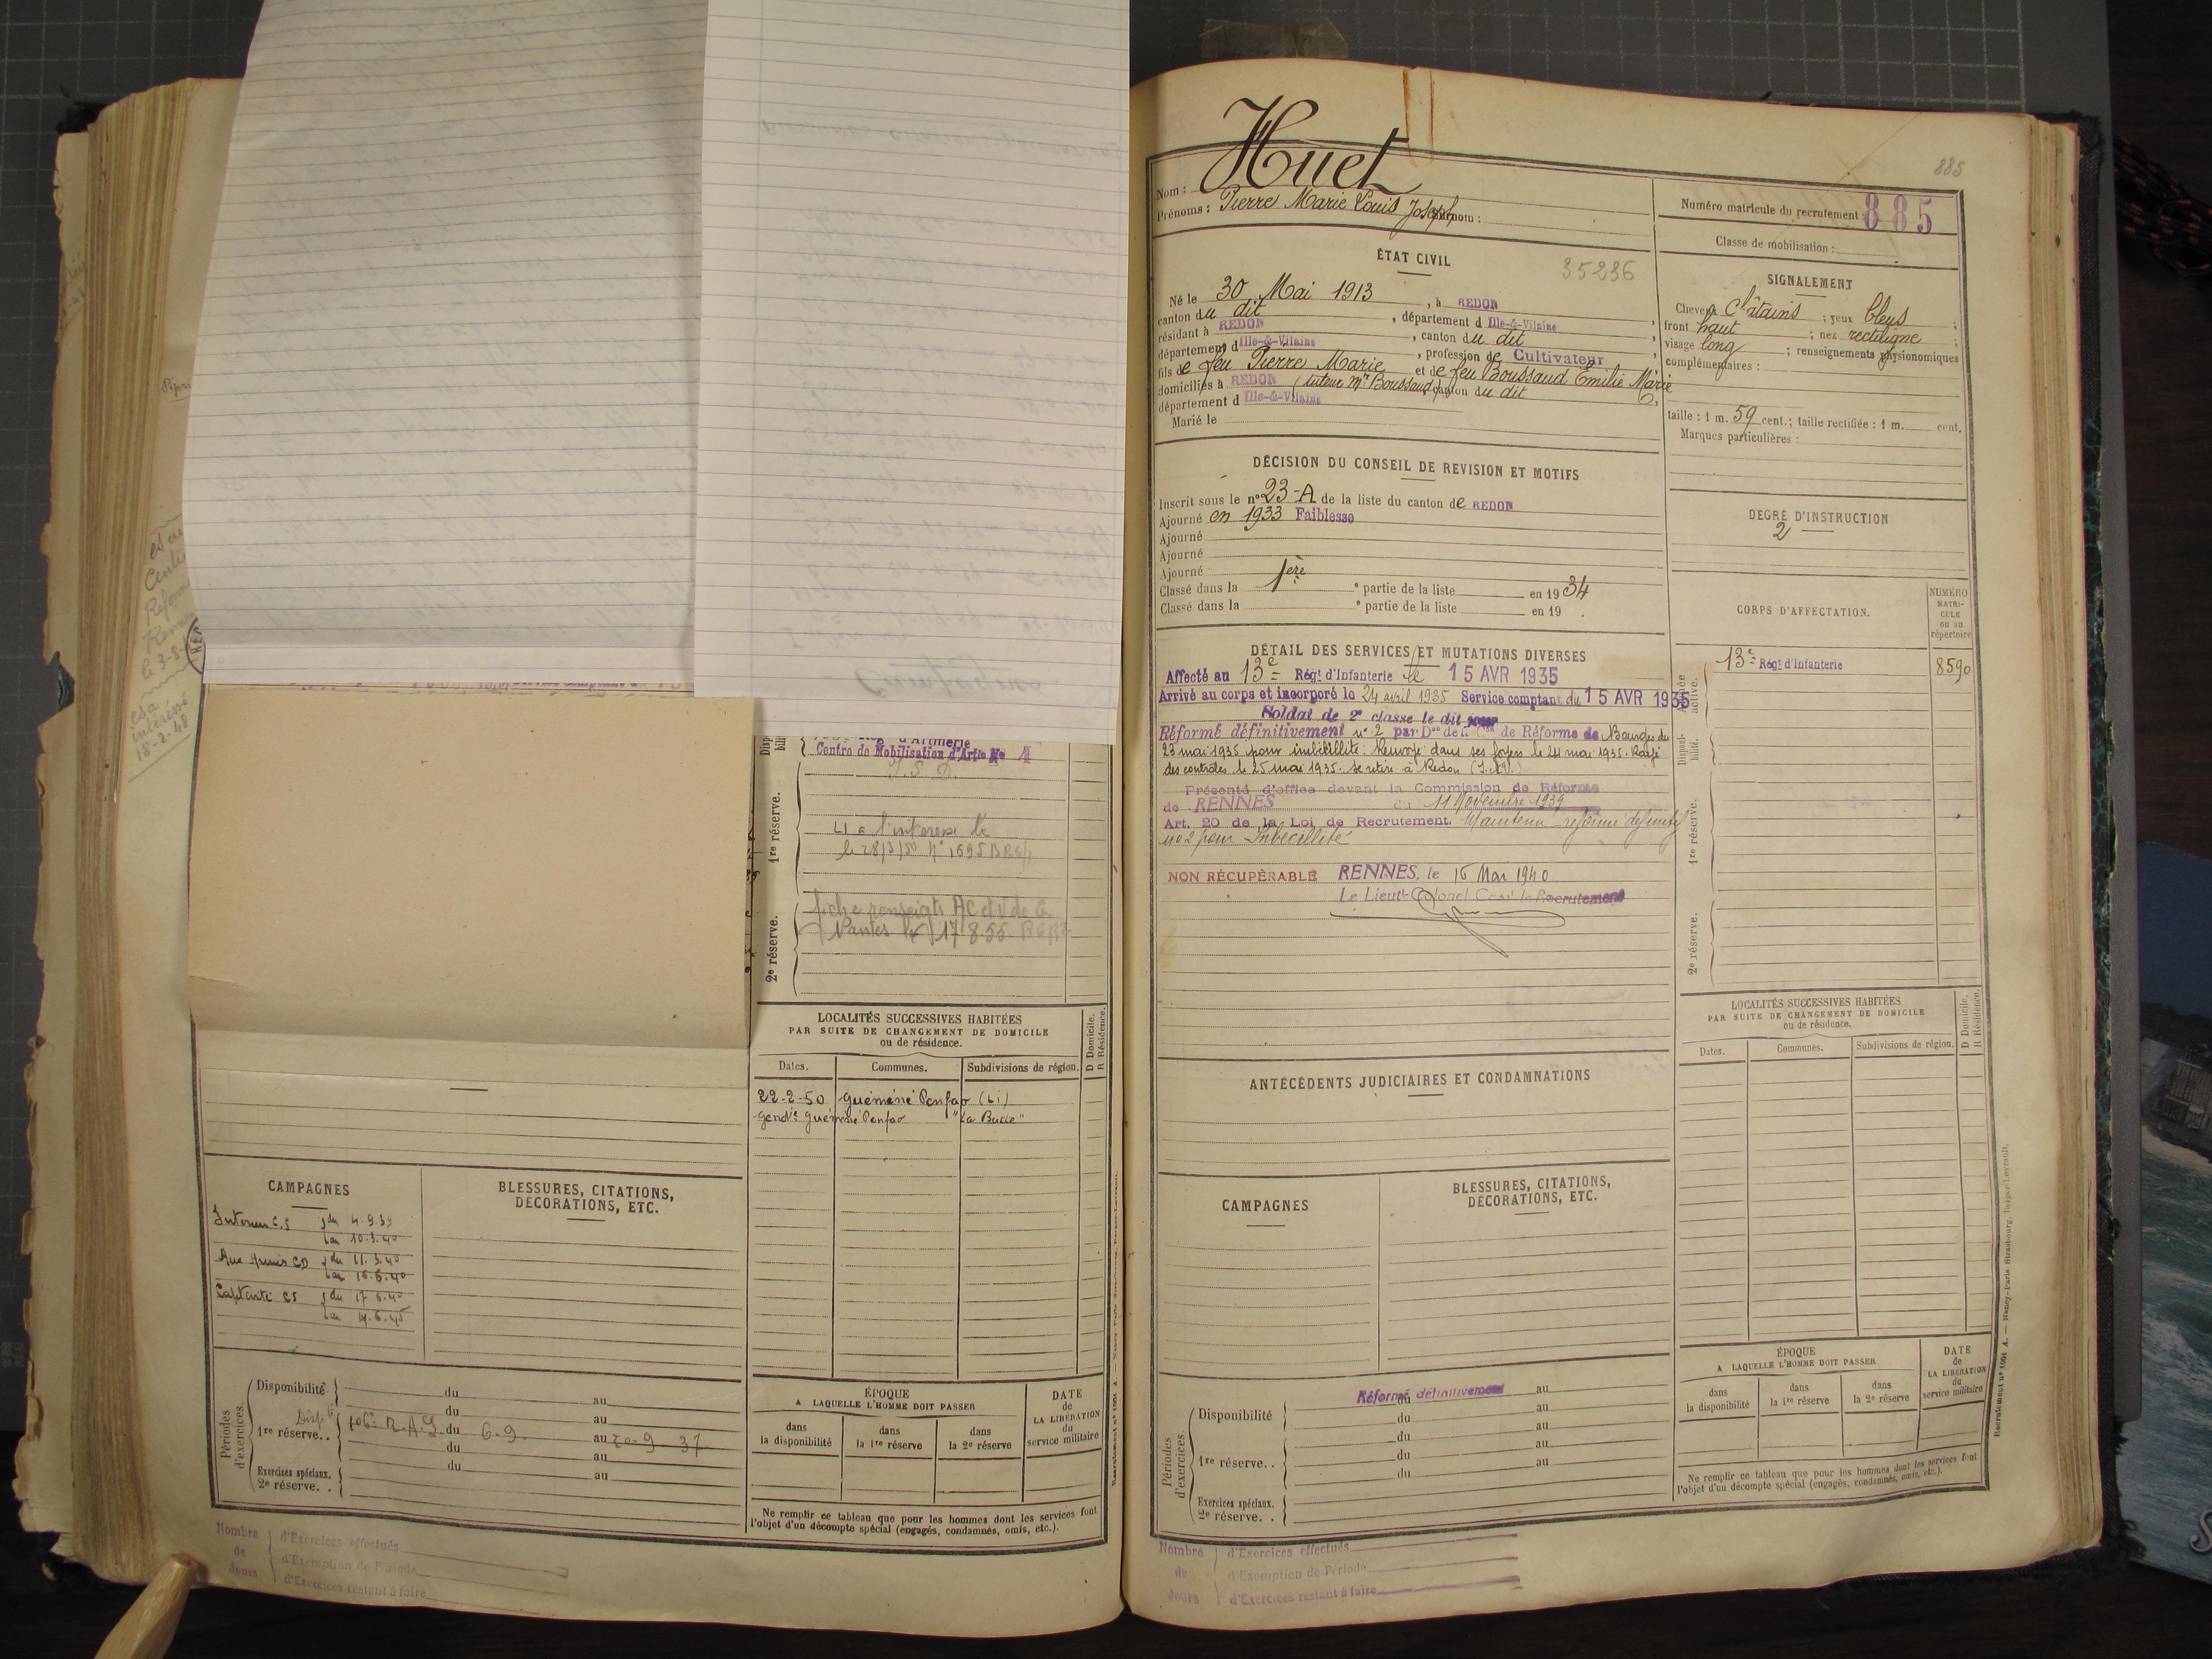 est au
Centre
Reform
Rennes
le 3-8-
intéressé
18-2-48
Centre de Mobilisation d'Artie No 4
1re réserve.
le 28/3/50 N° 1695 BRG/1
2e réserve.
fiche renseigts AC et V de G.
Nantes le 17 8.55.
LOCALITÉS SUCCESSIVES HABITÉES
PAR SUITE DE CHANGEMENT DE DOMICILE
ou de résidence.
D Domicile.
R Résidence.
Dates. Communes. Subdivisions de région.
22-2-50 Guémené Penfao (Li)
Gendie Guémené Penfao
CAMPAGNES
BLESSURES, CITATIONS,
DÉCORATIONS, ETC.
Intérieur C.S du 4.9.39
au 10.3.40
Aux Armées CD du 11.3.40
au 16.6.40
Captivité CS du 17.6.40
au 14.6.45
Périodes d'exercices.
Disponibilité du au
du au
1re réserve.. 106e R.A.L. du 6-9. au 20-9 37
du au
Exercices spéciaux. du au
2e réserve. .
ÉPOQUE
A LAQUELLE L'HOMME DOIT PASSER
dans la disponibilité
dans la 1re réserve
dans la 2e réserve
DATE de LA LIBÉRATION du service militaire
Ne remplir ce tableau que pour les hommes dont les services font
l'objet d'un décompte spécial (engagés, condamnés, omis, etc.).
Nombre de Jours
d'Exercices effectués
d'Exemption de Période
d'Exercices restant à faire
885
Nom : Huet
Prénoms : Pierre Marie Louis Joseph Surnom :
Numéro matricule du recrutement : 885
Classe de mobilisation :
ÉTAT CIVIL
35236
Né le 30 Mai 1913, à REDON
canton du dit, département d Ille-&-Vilaine
résidant à REDON, canton du dit
département d Ille-&-Vilaine, profession de Cultivateur
fils de feu Pierre Marie et de feu Boussaud Émilie Marie
domiciliés à REDON (tuteur Mr Boussaud), canton du dit
département d Ille-&-Vilaine
Marié le
SIGNALEMENT
Cheveux Châtains ; yeux bleus ;
front haut ; nez rectiligne ;
visage long ; renseignements physionomiques
complémentaires :
taille : 1 m. 59 cent.; taille rectifiée : 1 m. cent.
Marques particulières :
DÉCISION DU CONSEIL DE REVISION ET MOTIFS
Inscrit sous le n° 23-A de la liste du canton de REDON
Ajourné en 1933 Faiblesse
Ajourné
Ajourné
Ajourné
Classé dans la 1ère e partie de la liste en 1934
Classé dans la e partie de la liste en 19 .
DEGRÉ D'INSTRUCTION
2
CORPS D'AFFECTATION.
NUMÉRO MATRICULE ou au répertoire
13e Régt d'Infanterie 8590
Armée active.
Disponibilité.
1re réserve.
2e réserve.
DÉTAIL DES SERVICES ET MUTATIONS DIVERSES
Affecté au 13e Régt d'Infanterie le 15 AVR 1935
Arrivé au corps et incorporé le 24 avril 1935 Service comptant du 15 AVR 1935
Soldat de 2e classe le dit jour
Réformé définitivement n° 2 par Don de la Con de Réforme de Bourges du
23 mai 1935 pour imbécillité. Renvoyé dans ses foyers le 24 mai 1935. Rayé
des contrôles le 25 mai 1935. Se retire à Redon (I.&V.)
Présenté d'office devant la Commission de Réforme
de RENNES du 11 Novembre 1939
Art. 20 de la Loi de Recrutement. Maintenu réformé définitif
no 2 pour Imbécillité
NON RÉCUPÉRABLE RENNES, le 16 Mai 1940
Le Lieut-Colonel Cdt le Recrutement
LOCALITÉS SUCCESSIVES HABITÉES
PAR SUITE DE CHANGEMENT DE DOMICILE
ou de résidence.
D Domicile.
R Résidence.
Dates. Communes. Subdivisions de région.
ANTÉCÉDENTS JUDICIAIRES ET CONDAMNATIONS
CAMPAGNES
BLESSURES, CITATIONS,
DÉCORATIONS, ETC.
Périodes d'exercices.
Réformé définitivement
Disponibilité du au
du au
du au
1re réserve.. du au
du
Exercices spéciaux.
2e réserve. .
ÉPOQUE
A LAQUELLE L'HOMME DOIT PASSER
dans la disponibilité
dans la 1re réserve
dans la 2e réserve
DATE de LA LIBÉRATION du service militaire
Ne remplir ce tableau que pour les hommes dont les services font
l'objet d'un décompte spécial (engagés, condamnés, omis, etc.).
Nombre de Jours
d'Exercices effectués
d'Exemption de Période
d'Exercices restant à faire